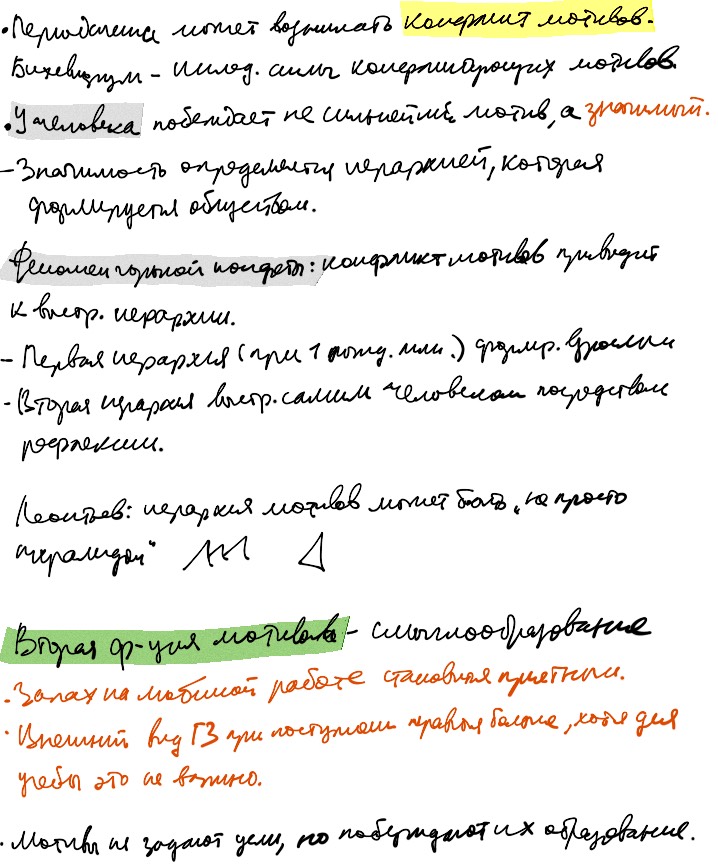 • Периодически может возникать конфликт мотивов.
Бихевиоризм – исслед. силы конфликтующих мотивов.
• У человека побеждает не сильнейший мотив, а значимый.
– Значимость определяется иерархией, которая
формируется обществом.
Феномен горькой конфеты: конфликт мотивов приводит
к выстр. иерархии.
– Первая иерархия (при 1 рожд. личн.) формир. взрослыми
– Вторая иерархия выстр. самим человеком посредством
рефлексии.
Леонтьев: иерархия мотивов может быть „не просто
пирамидой“
Вторая ф-ция мотивов – смыслообразование
• Запах на любимой работе становится приятным.
• Внешний вид ГЗ при поступлении нравился больше, хотя для
учебы это не важно.
• Мотивы не задают цели, но побуждают их образование.